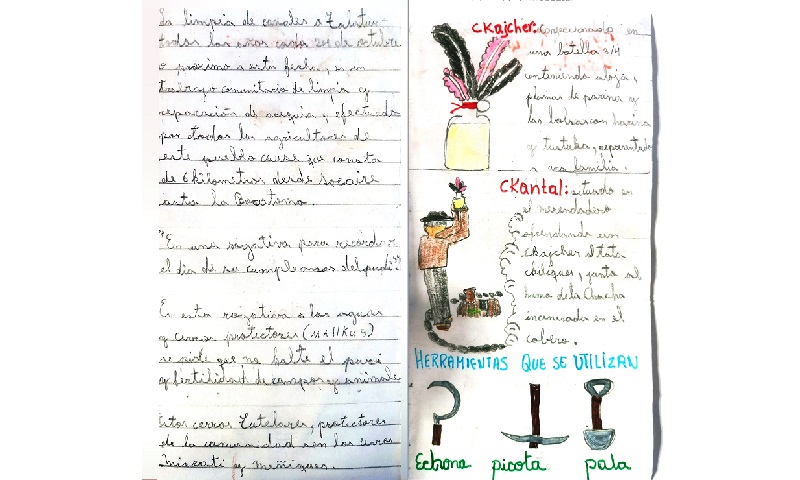 La limpia de canales o Talatur
todos los años cada 24 de octubre
o proximo a esta fecha, es un
trabajo comunitario de limpia y
reparación de acequia, efectuado
por todos los agricultores de
este pueblo cause que consta
de 6 kilometros desde Socaire
asta la
"Es una rogativa para recordar
el dia de su cumpleaños del
En esta rogativa a las aguas
y cerros protectores (mallkus)
se pide que no halte el
y fertilidad de campos y animale
Estos cerros Tutelares, protectores
de la comunidad son los cerros
Miscanti y Meñiques.
CKajcher: confeccionado en
una botella 3/4
conteniendo aloja,
plumas de parina y
las bolsas con harina
y tustuka, representado
a
CKantal: situado en
el merendadero
ofrendando un
ckajcher al tata
chiliques, junto al
humo de la Chacha
incinerada en el
cobero.
HERRAMIENTAS QUE SE UTILIZAN
Echona picota pala